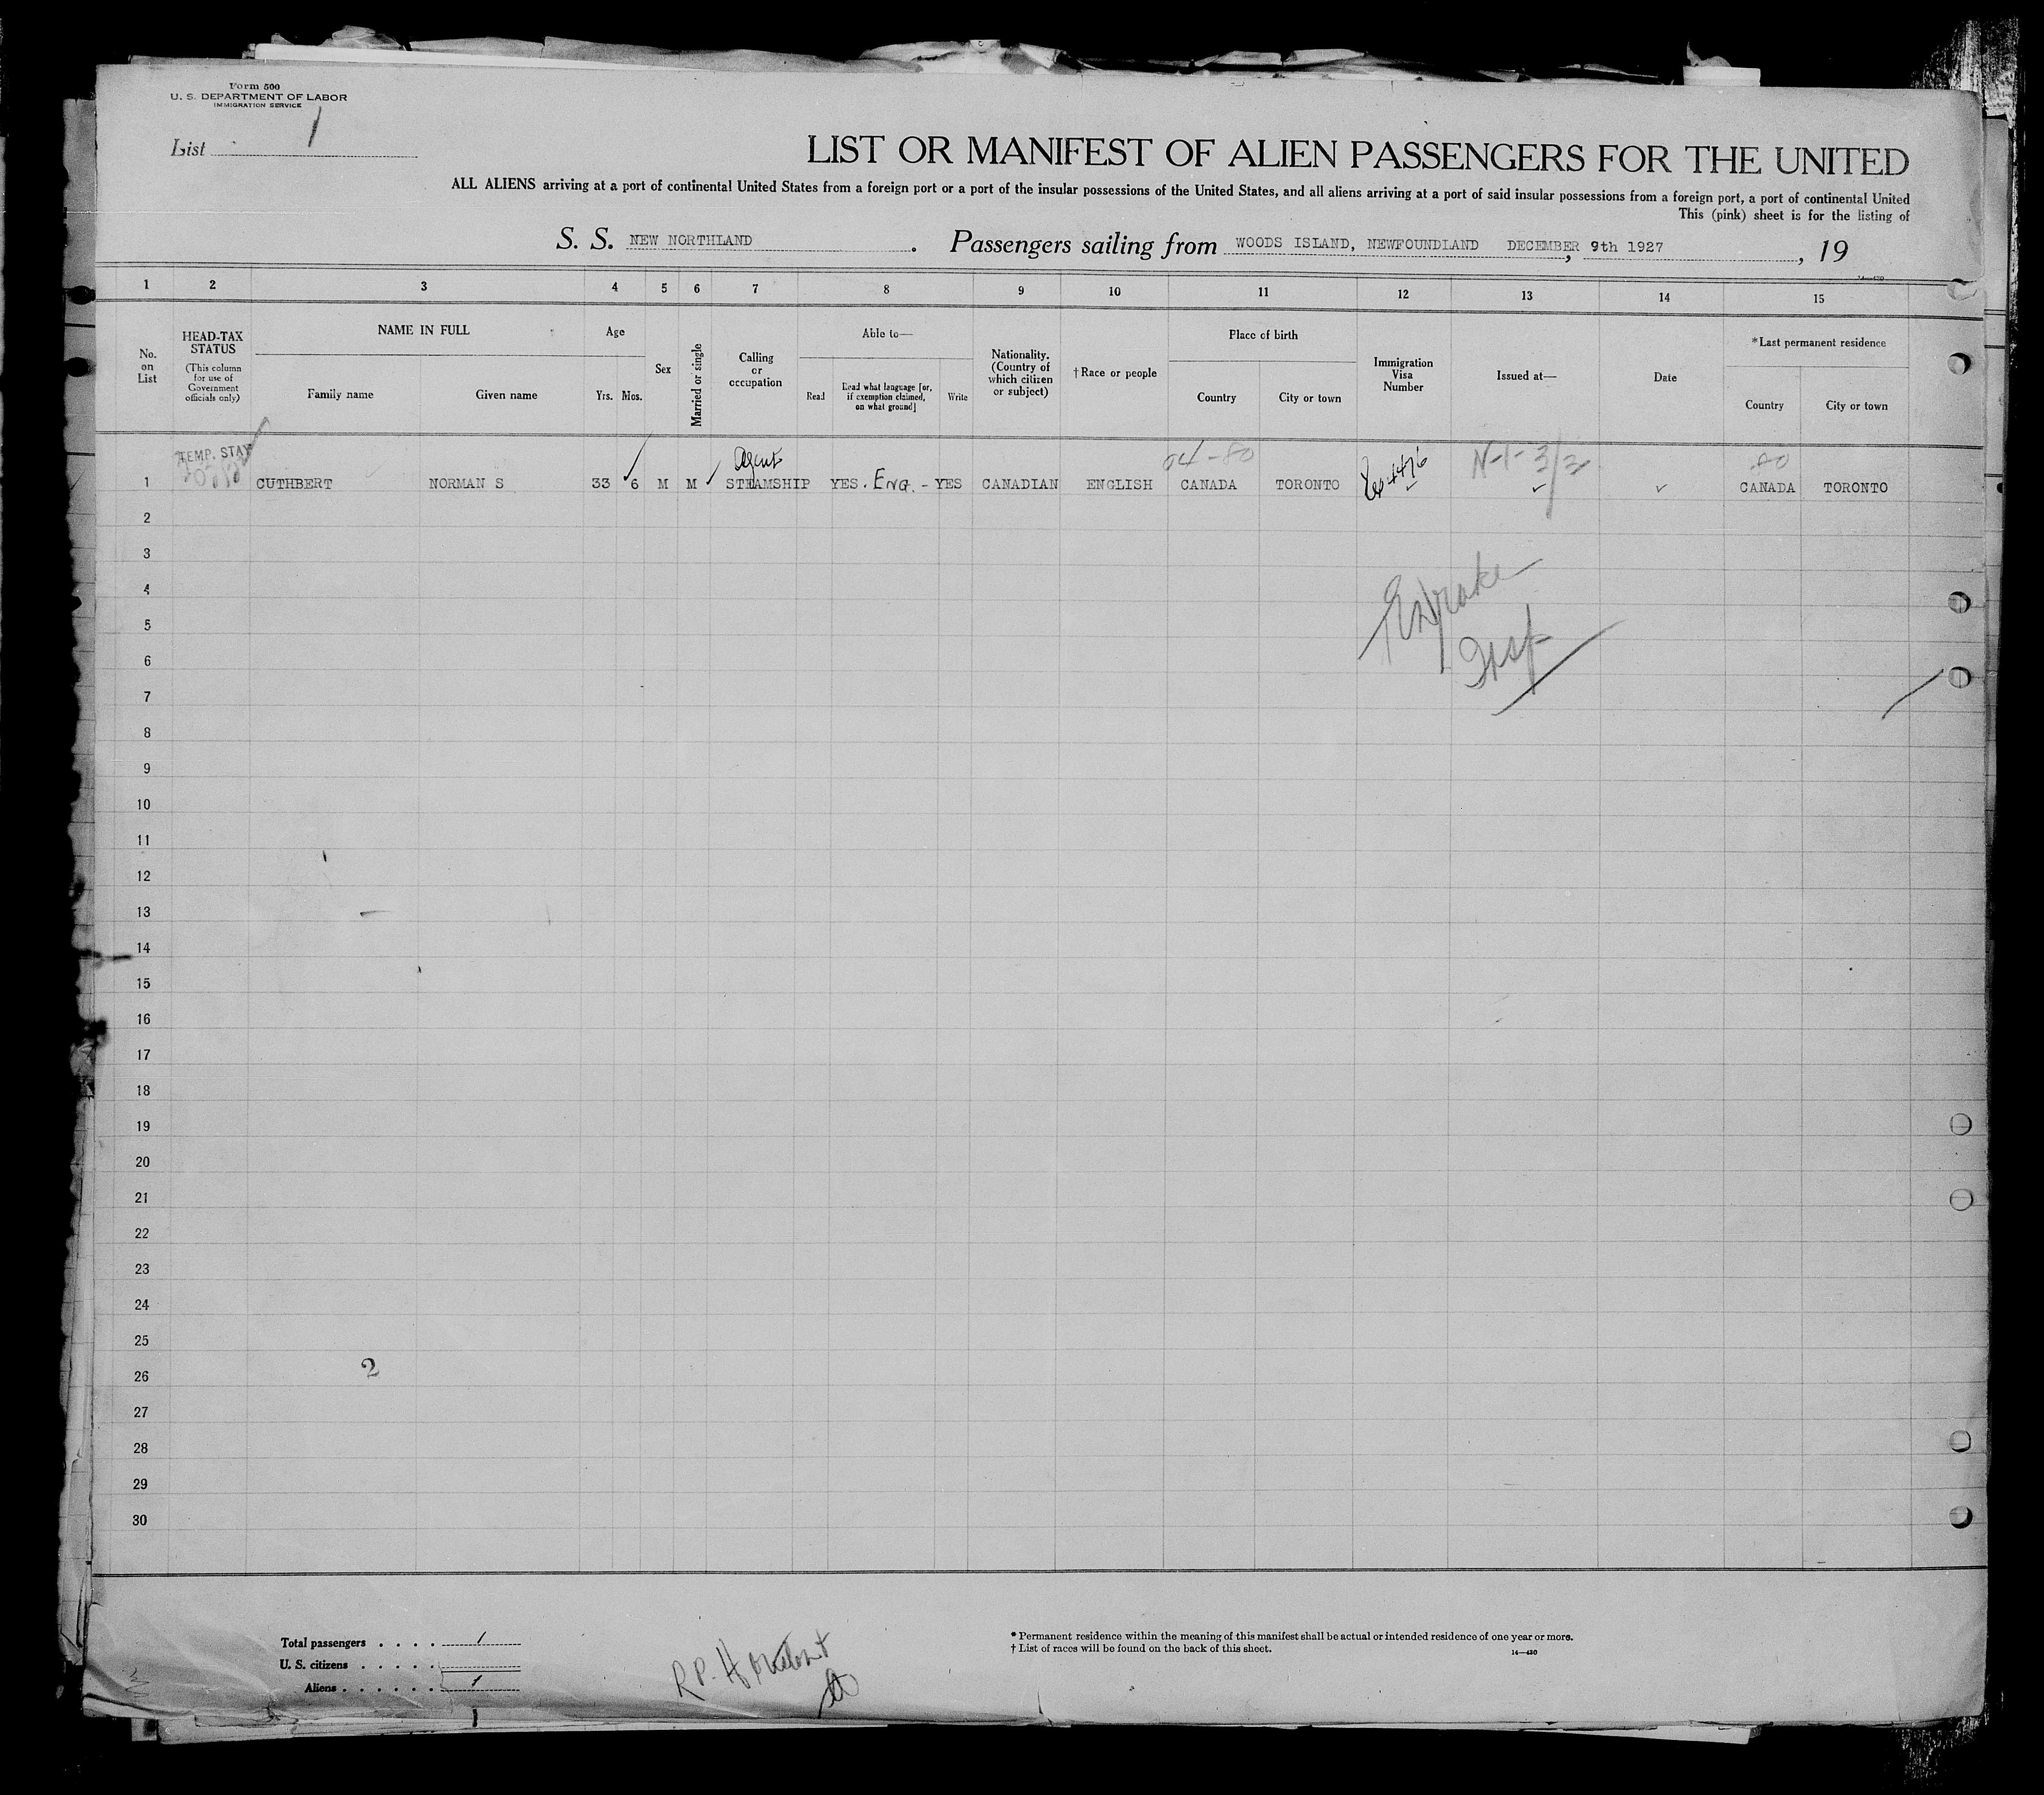 Form 500
U. S. DEPARTMENT OF LABOR
IMMIGRATION SERVICE
List 1
LIST OR MANIFEST OF ALIEN PASSENGERS FOR THE UNITED
ALL ALIENS arriving at a port of continental United States from a foreign port or a port of the insular possessions of the United States, and all aliens arriving at a port of said insular possessions from a foreign port, a port of continental United
This (pink) sheet is for the listing of
S. S. NEW NORTHLAND . Passengers sailing from WOODS ISLAND, NEWFOUNDLAND DECEMBER, 9th 1927, 19
14—430
1 2 3 4 5 6 7 8 9 10 11 12 13 14 15
No. on List
HEAD-TAX STATUS
(This column for use of Government officials only)
NAME IN FULL
Family name Given name
Age
Yrs. Mos.
Sex
Married or single
Calling or occupation
Able to—
Read
Read what language [or, if exemption claimed, on what ground]
Write
Nationality. (Country of which citizen or subject)
†Race or people
Place of birth
Country City or town
Immigration Visa Number
Issued at—
Date
*Last permanent residence
Country City or town
TEMP. STAY Agent 04-80
1 CUTHBERT NORMAN S 33 6 M M STEAMSHIP YES. ENG. - YES CANADIAN ENGLISH CANADA TORONTO CANADA TORONTO
2
3
4
5
6
7
8
9
10
11
12
13
14
15
16
17
18
19
20
21
22
23
24
25
26
27
28
29
30
2
Drake
Insp
Total passengers . . . . 1
U. S. citizens . . . . .
Aliens . . . . . . 1
* Permanent residence within the meaning of this manifest shall be actual or intended residence of one year or more.
† List of races will be found on the back of this sheet.
14—430